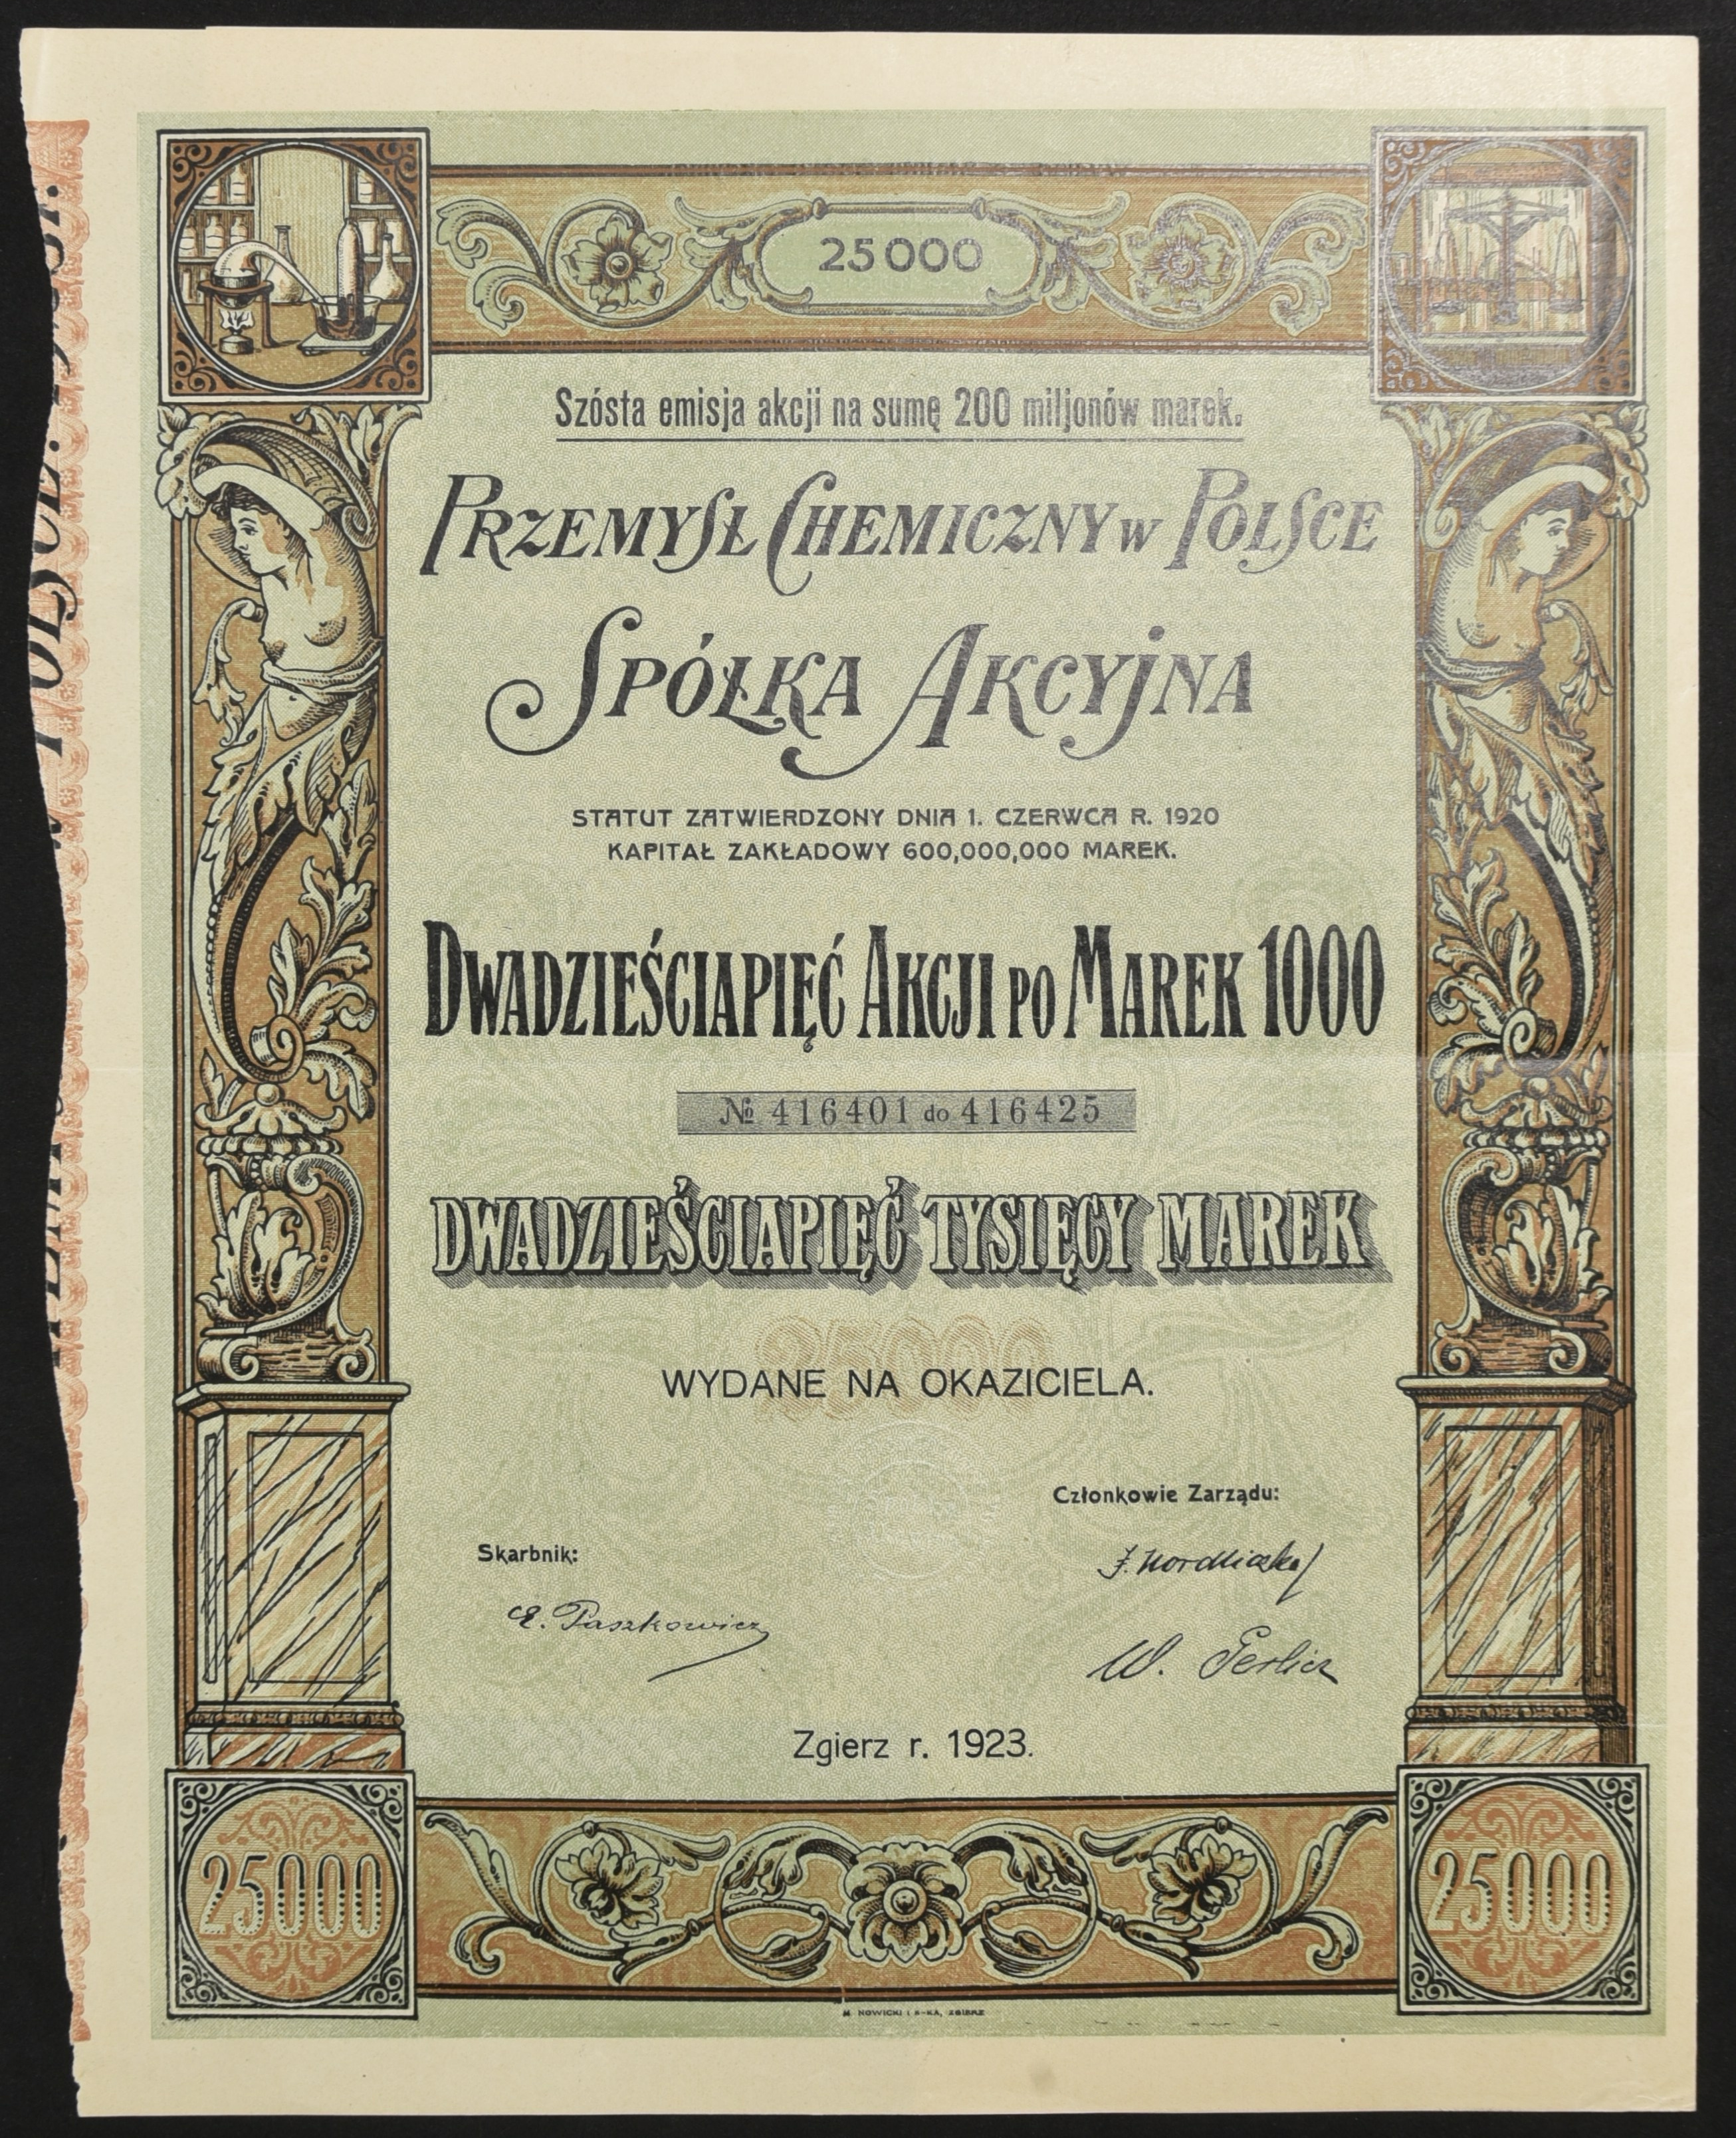 25000
Szósta emisja akcji na sumę 200 miljonów marek.
PRZEMYSŁ CHEMICZNY w POLSCE
SPÓŁKA AKCYJNA
STATUT ZATWIERDZONY DNIA 1. CZERWCA R. 1920
KAPITAŁ ZAKŁADOWY 600,000,000 MAREK.
DWADZIEŚCIAPIĘĆ AKCJI PO MAREK 1000
№ 416401 do 416425
DWADZIEŚCIAPIĘĆ TYSIĘCY MAREK
25000
WYDANE NA OKAZICIELA.
Członkowie Zarządu:
Skarbnik:
E. Paszkowicz
W.
Zgierz r. 1923.
25000
25000
M. NOWICKI I S-KA, ZGIERZ